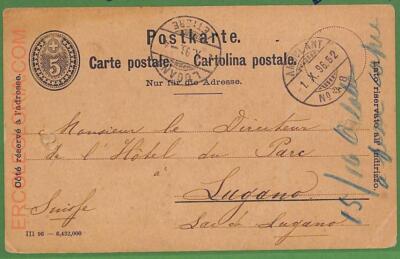 Postkarte.
Carte postale. Cartolina postale.
Nur für die Adresse.
Côté réservé à l'adresse.
Lato riservato all'indirizzo.
5
LUGANO
LETTERE
AMBULANT
1. X. 96.
Nº
Monsieur le Directeur
de l'Hôtel du Parc
à
Lugano
Suisse
Lac de Lugano
15/16
III 96 — 6,432,000